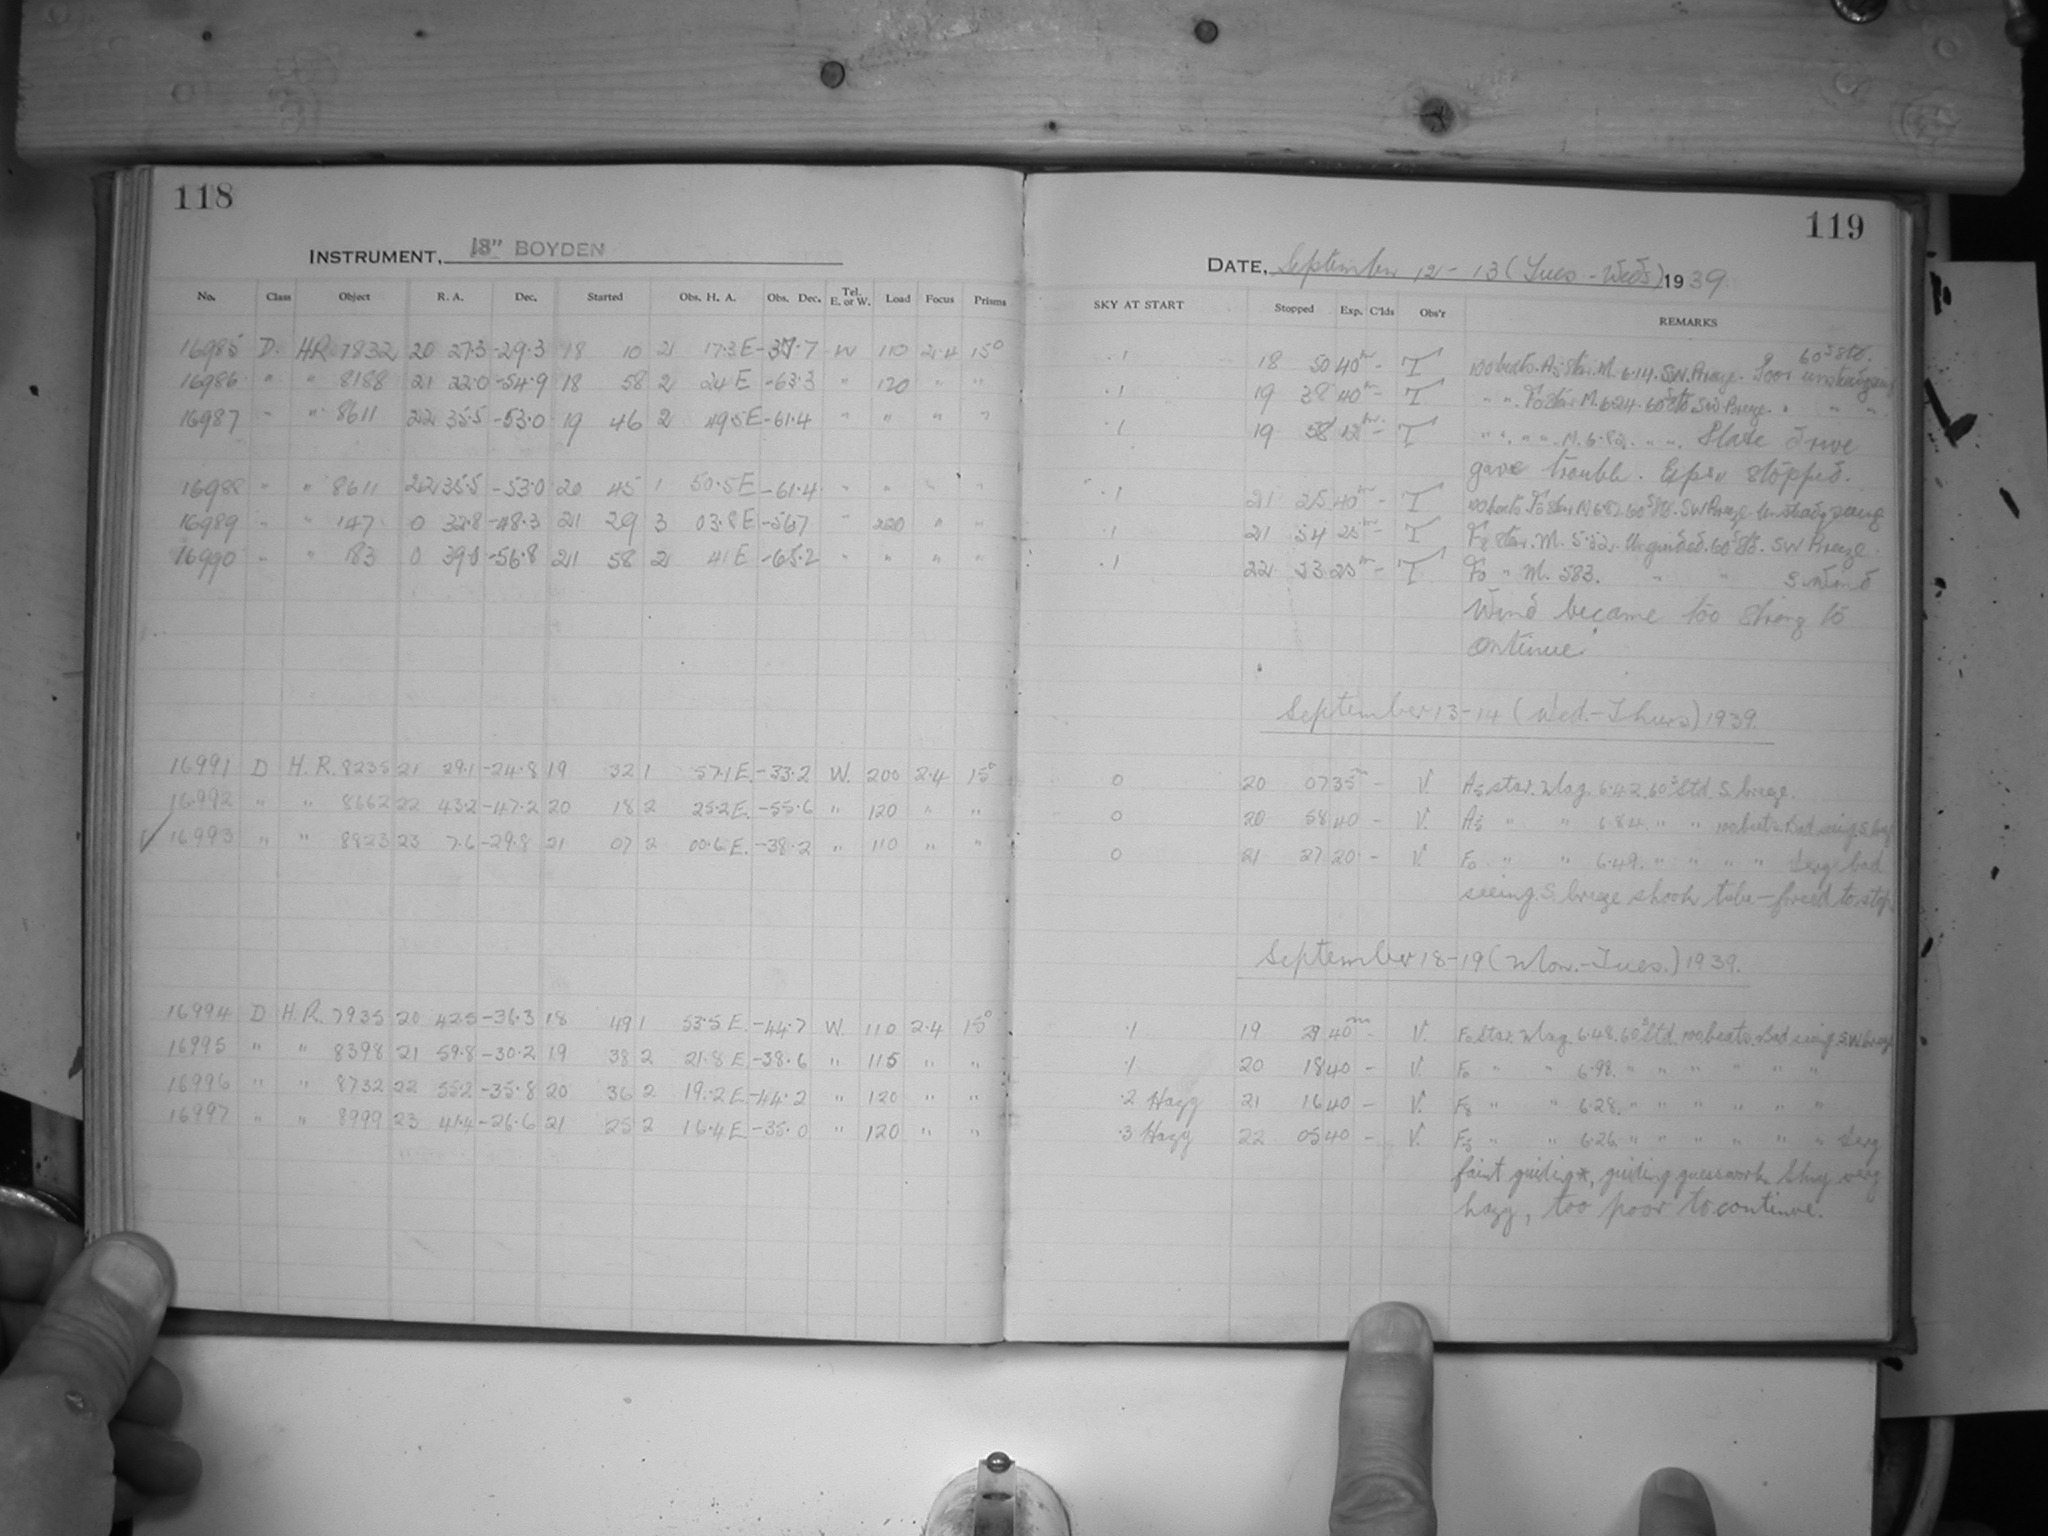 118
INSTRUMENT, 13" BOYDEN
No. Class Object R. A. Dec. Started Obs. H. A. Obs. Dec. Tel. E. or W. Load Focus Prisms
16985 D. HR 7832 20 27.3 -29.3 18 10 2 17.3 E -37.7 W 110 2.4 15°
16986 " " 8188 21 22.0 -54.9 18 58 2 24 E -63.3 " 120 " "
16987 " " 8611 22 35.5 -53.0 19 46 2 49.5 E -61.4 " " " "
16988 " " 8611 22 35.5 -53.0 20 45 1 50.5 E -61.4 " " " "
16989 " " 147 0 32.8 -48.3 21 29 3 03.8 E -56.7 " 220 " "
16990 " " 183 0 39.0 -56.8 21 58 2 41 E -65.2 " " " "
16991 D H.R. 8235 21 29.1 -24.8 19 32 1 57.1 E. -33.2 W. 200 2.4 15°
16992 " " 8662 22 43.2 -47.2 20 18 2 25.2 E. -55.6 " 120 " "
16993 " " 8823 23 7.6 -29.8 21 07 2 00.6 E. -38.2 " 110 " "
16994 D H.R. 7935 20 42.5 -36.3 18 49 1 53.5 E. -44.7 W. 110 2.4 15°
16995 " " 8398 21 59.8 -30.2 19 38 2 21.8 E -38.6 " 115 " "
16996 " " 8732 22 55.2 -35.8 20 36 2 19.2 E. -44.2 " 120 " "
16997 " " 8999 23 41.4 -26.6 21 25 2 16.4 E -35.0 " 120 " "
119
DATE, September 12-13 (Tues.-Wed) 1939
SKY AT START Stopped Exp. C'lds Obs'r REMARKS
.1 18 50 40m - T 100 beats. A5 star. M. 6.14. SW. Breeze. Poor unsteady seeing 60s Std.
.1 19 38 40m - T " " F0 star M. 6.24. 60s Std SW Breeze. " " "
.1 19 58 12m - T " " " " M. 6.82. " " Slate drive
gave trouble. Expn stopped.
.1 21 25 40m - T 100 beats. F0 star M 6.82 60s Std. SW Breeze Unsteady seeing
.1 21 54 25m - T F8 star. M. 5.52. Unguided. 60s Std. SW Breeze.
.1 22 23 25m - T F0 " M. 583. " " S. Wind
Wind became too strong to
continue.
September 13-14 (Wed.-Thurs) 1939.
0 20 07 35m - V. A5 star. Mag. 6.42. 60s Std S. breeze.
0 20 58 40 - V. A3 " " 6.84. " " 100 beats. Bad seeing S. breeze
0 21 27 20 - V. F0 " " 6.49. " " " " Very bad
seeing. S. breeze shook tube - forced to stop.
September 18-19 (Mon.-Tues.) 1939.
.1 19 29 40m - V. F0 star. Mag. 6.48. 60s Std. 100 beats. Bad seeing S.W. breeze
.1 20 18 40 - V. F0 " " 6.98. " " " " "
.2 Hazy 21 16 40 - V. F8 " " 6.28. " " " " "
.3 Hazy 22 05 40 - V. F5 " " 6.26. " " " " " Very
faint guiding *, guiding guesswork. Sky very
hazy, too poor to continue.